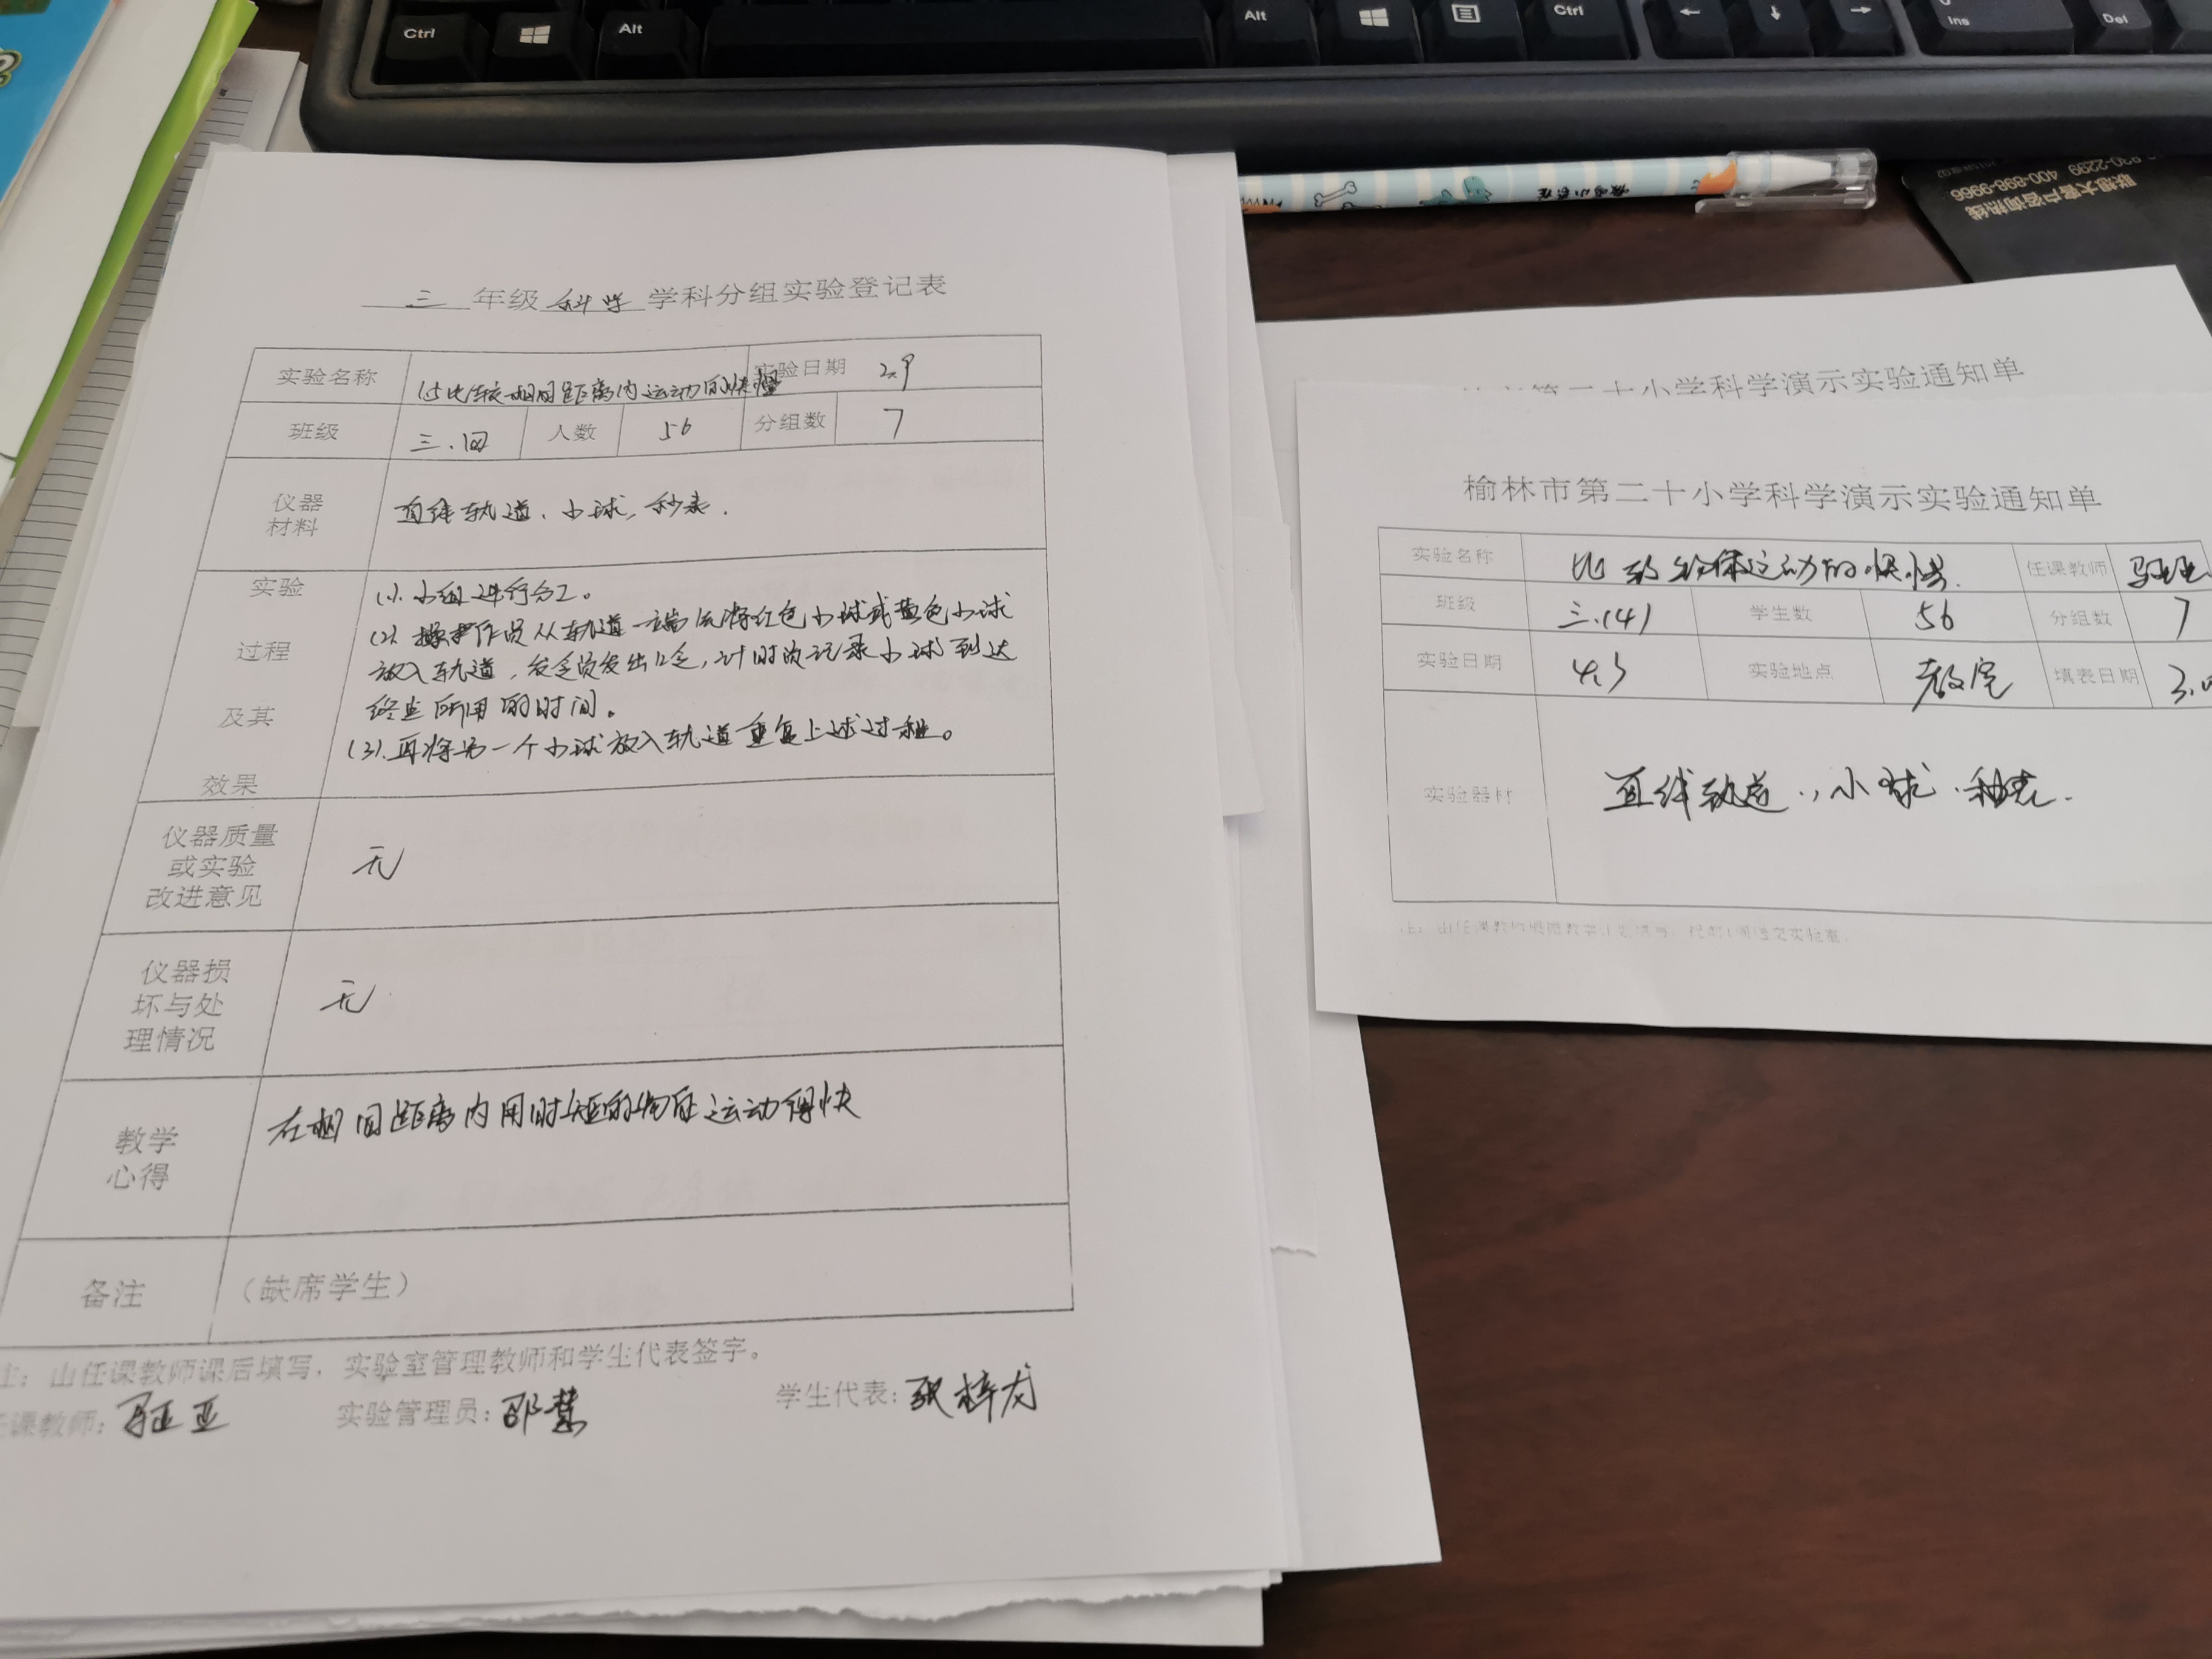 Ctrl
Alt
Alt
Ctrl
Ins
Del
联想大客户咨询热线
400-898-9966
三 年级 科学 学科分组实验登记表
实验名称 比较相同距离内运动的快慢 实验日期 2.9
班级 三.四 人数 56 分组数 7
仪器材料 直线轨道、小球、秒表.
实验过程及其效果
(1). 小组进行分工。
(2). 操作员从轨道一端将红色小球或黄色小球
放入轨道，发令员发出口令，计时员记录小球到达
终点所用的时间。
(3).再将另一个小球放入轨道重复上述过程。
仪器质量或实验改进意见 无
仪器损坏与处理情况 无
教学心得 在相同距离内用时短的物体运动得快
备注 （缺席学生）
注：由任课教师课后填写，实验室管理教师和学生代表签字。
任课教师： 实验管理员：邵慧 学生代表：张梓
第二十小学科学演示实验通知单
榆林市第二十小学科学演示实验通知单
实验名称 比较物体运动的快慢. 任课教师
班级 三.(4) 学生数 56 分组数 7
实验日期 4.3 实验地点 教室 填表日期 3.
实验器材 直线轨道.，小球.秒表.